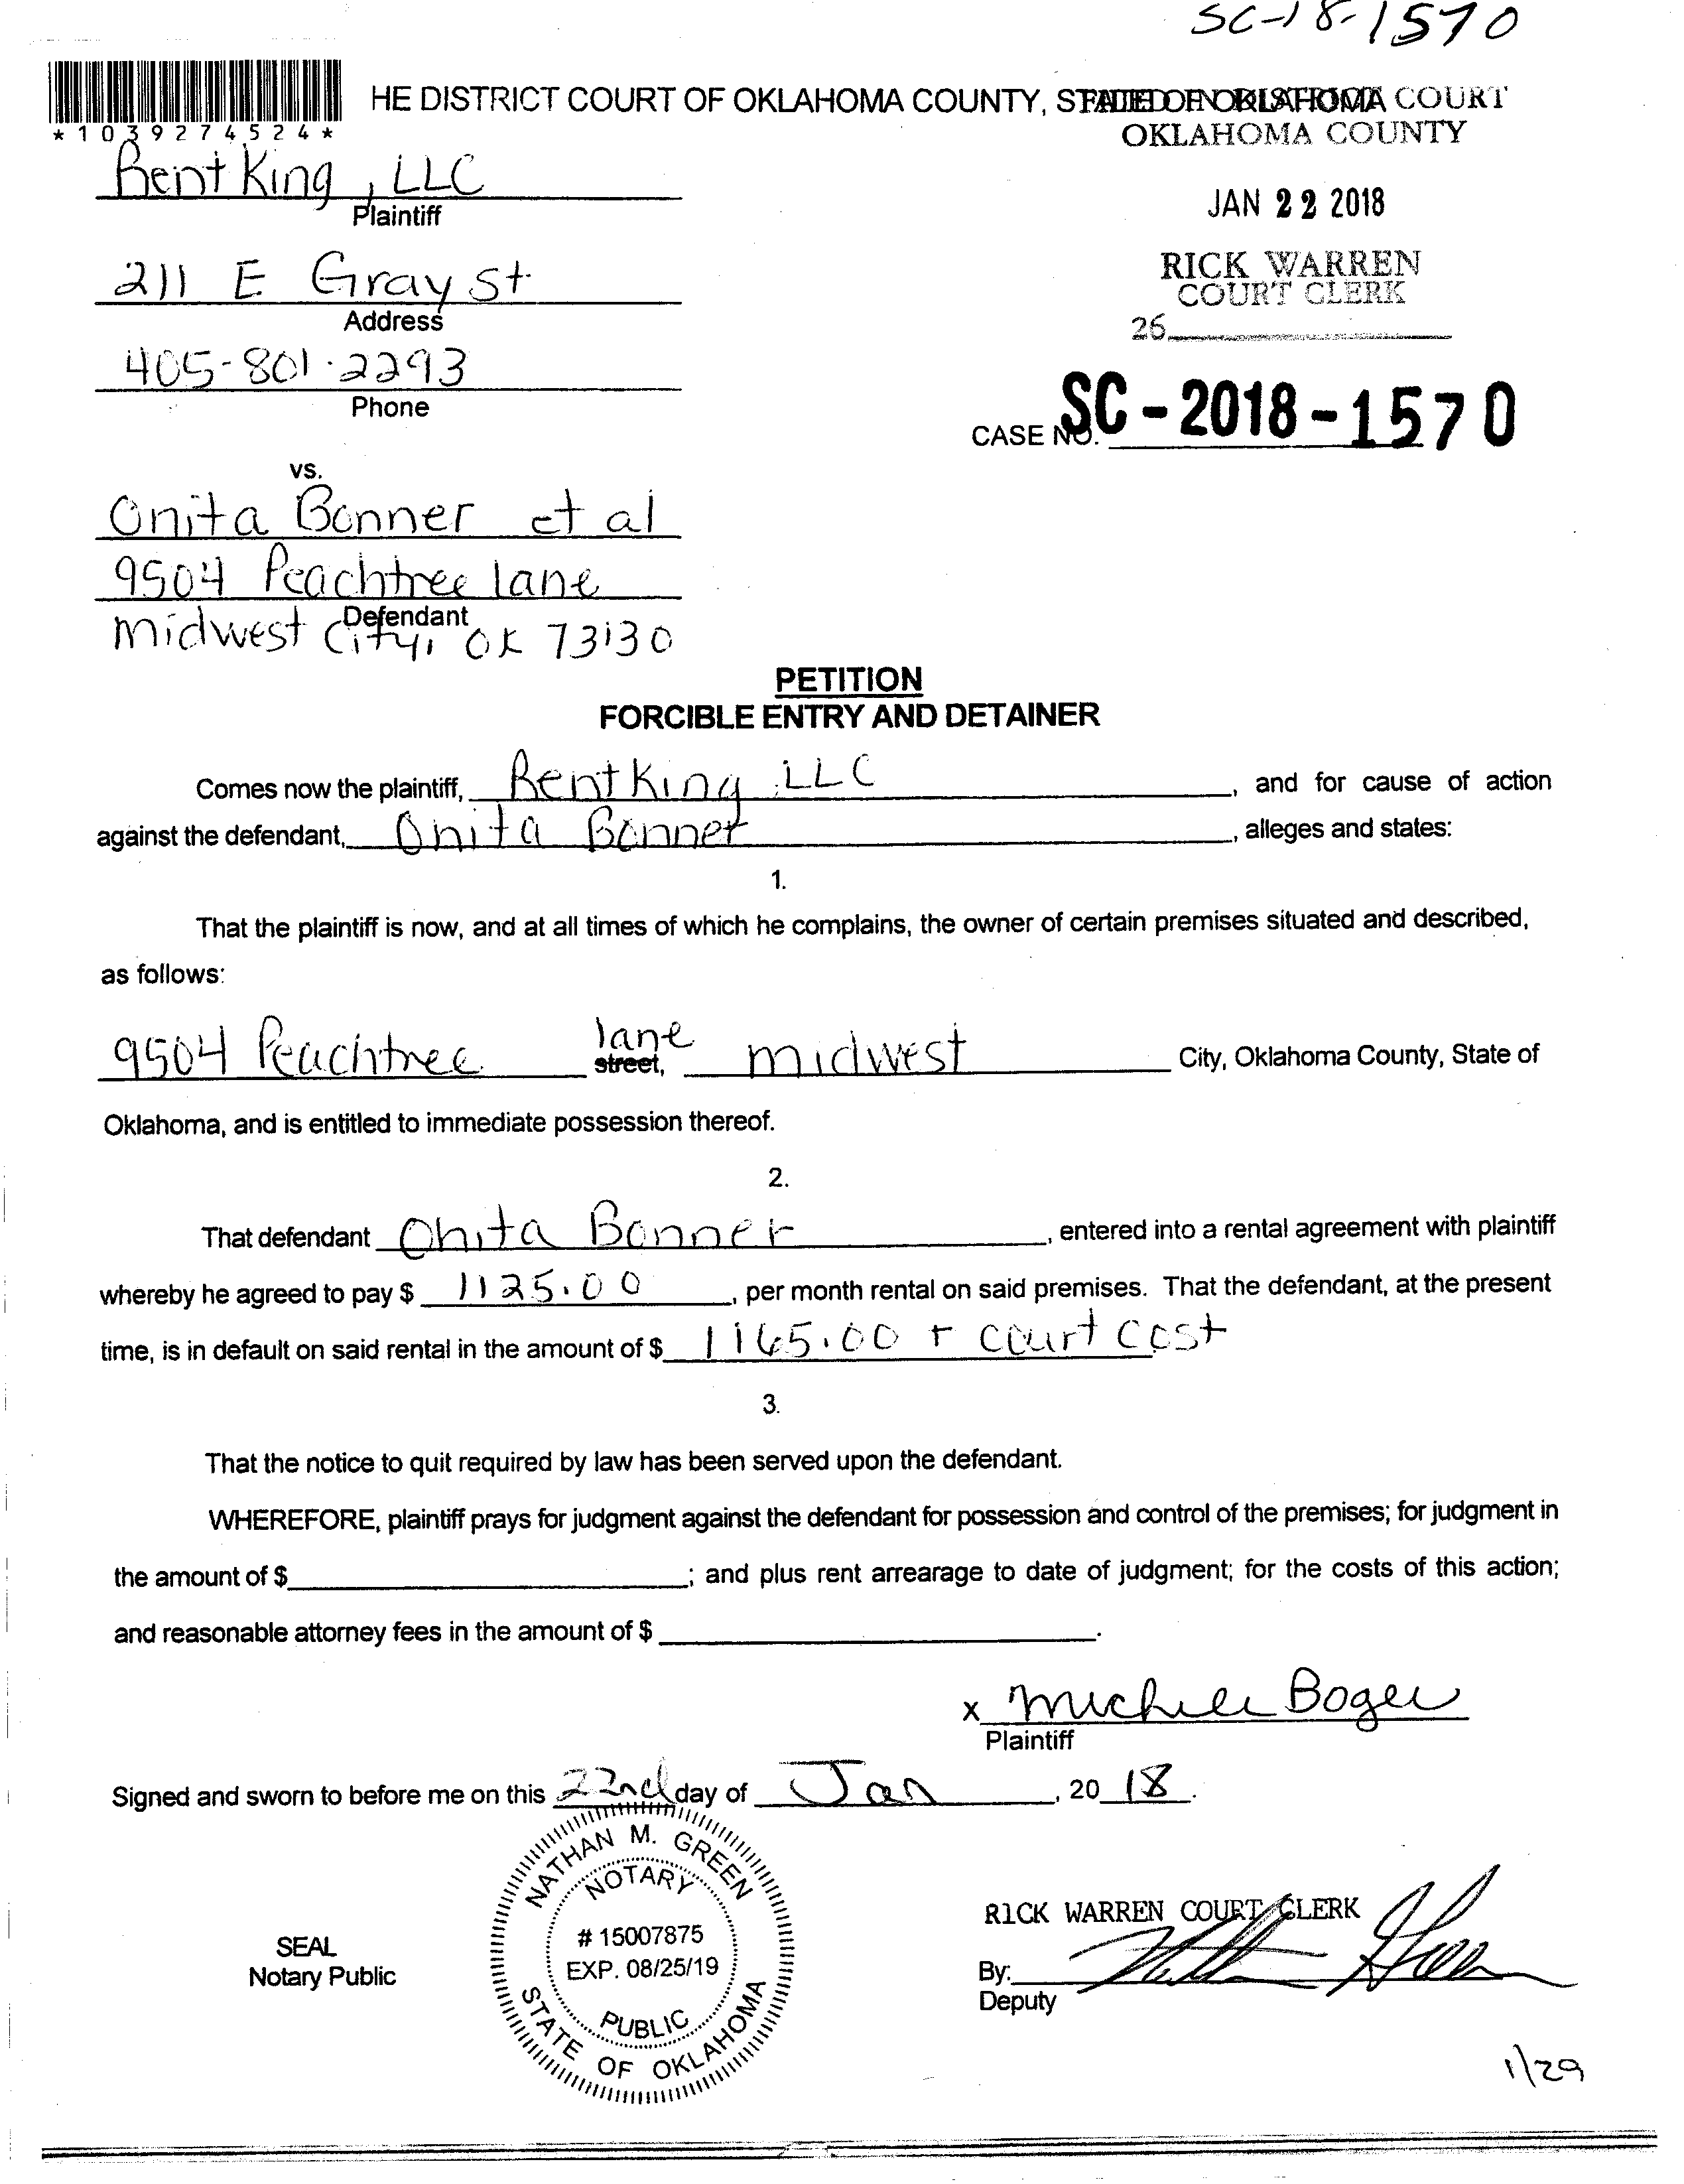 SC-18-1570
HE DISTRICT COURT OF OKLAHOMA COUNTY, STATE OF OKLAHOMA
FILED IN DISTRICT COURT
OKLAHOMA COUNTY
*1039274524*
Rent King, LLC
Plaintiff
JAN 22 2018
211 E Gray St
Address
RICK WARREN
COURT CLERK
26
405-801-2293
Phone
CASE NO. SC-2018-1570
vs.
Onita Bonner et al
9504 Peachtree lane
Defendant
Midwest City, OK 73130
PETITION
FORCIBLE ENTRY AND DETAINER
Comes now the plaintiff, Rent King, LLC, and for cause of action
against the defendant, Onita Bonner, alleges and states:
1.
That the plaintiff is now, and at all times of which he complains, the owner of certain premises situated and described,
as follows:
9504 Peachtree lane street, midwest City, Oklahoma County, State of
Oklahoma, and is entitled to immediate possession thereof.
2.
That defendant Onita Bonner, entered into a rental agreement with plaintiff
whereby he agreed to pay $ 1125.00, per month rental on said premises. That the defendant, at the present
time, is in default on said rental in the amount of $ 1165.00 + court cost
3.
That the notice to quit required by law has been served upon the defendant.
WHEREFORE, plaintiff prays for judgment against the defendant for possession and control of the premises; for judgment in
the amount of $ ; and plus rent arrearage to date of judgment; for the costs of this action;
and reasonable attorney fees in the amount of $ .
x Michele Boger
Plaintiff
Signed and sworn to before me on this 22nd day of Jan, 2018.
NATHAN M. GREEN
NOTARY
# 15007875
EXP. 08/25/19
PUBLIC
STATE OF OKLAHOMA
SEAL
Notary Public
R1CK WARREN COURT CLERK
By:
Deputy
1/29